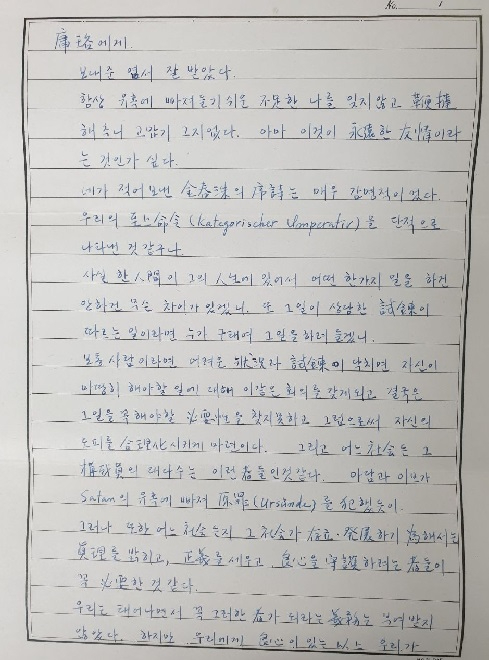 No. 1
席珞에게.
보내준 엽서 잘 받았다.
항상 유혹에 빠져들기 쉬운 不足한 나를 잊지않고 鞭撻
해주니 고맙기 그지없다. 아마 이것이 永遠한 友情이라
는 것인가 싶다.
네가 적어보낸 金春洙의 序詩는 매우 감명적이었다.
우리의 至上命令 (Kategorischer Imperativ) 을 단적으로
나타낸 것 같구나.
사실 한 人間이 그의 人生에 있어서 어떤 한가지 일을 하건
안하건 무슨 차이가 있겠니. 또 그일이 상당한 試鍊이
따르는 일이라면 누가 구태여 그일을 하려 들겠니.
보통사람이라면 어려운 狀況과 試鍊이 닥치면 자신이
마땅히 해야할 일에 대해 이같은 회의를 갖게되고 결국은
그일을 꼭 해야할 必要性을 찾지못하고 그럼으로써 자신의
도피를 合理化시키게 마련이다. 그리고 어느 社会든 그
構成員의 대다수는 이런 者들인것같다. 아담과 이브가
Satan의 유혹에 빠져 原罪 (Ursünde) 를 犯했듯이.
그러나 또한 어느 社会든지 그 社会가 存立·発展하기 爲해서는
眞理를 밝히고, 正義를 세우고 良心을 守護하려는 者들이
꼭 必要한 것 같다.
우리는 태어나면서 꼭 그러한 者가 되라는 義務는 부여받지
않았다. 하지만 우리에게 良心이 있는 以上 우리가